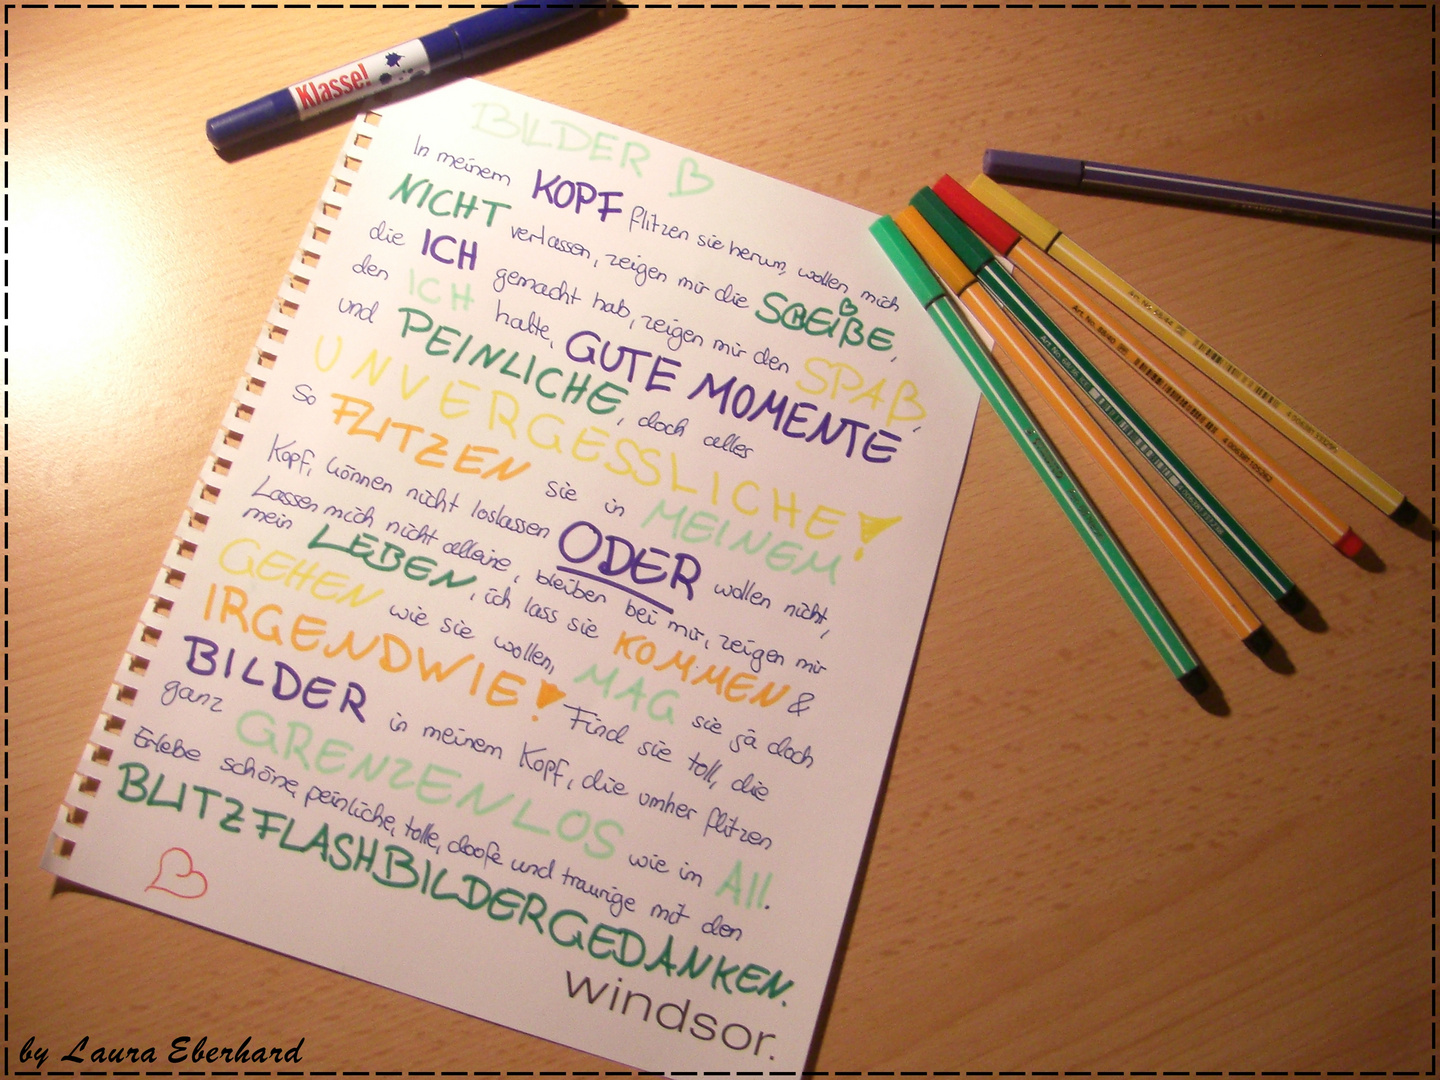 Klasse!
BILDER
In meinem KOPF flitzen sie herum, wollen mich
NICHT verlassen, zeigen mir die SCHEIßE,
die ICH gemacht hab, zeigen mir den SPAß,
den ICH hatte, GUTE MOMENTE
und PEINLICHE, doch alles
UNVERGESSLICHE!
So FLITZEN sie in MEINEM
Kopf, können nicht loslassen ODER wollen nicht,
Lassen mich nicht alleine, bleiben bei mir, zeigen mir
mein LEBEN, ich lass sie KOMMEN &
GEHEN wie sie wollen, MAG sie ja doch
IRGENDWIE! Find sie toll, die
BILDER in meinem Kopf, die umher flitzen
ganz GRENZENLOS wie im All.
Erlebe schöne, peinliche, tolle, doofe und traurige mit den
BLITZFLASHBILDERGEDANKEN.
windsor.
by Laura Eberhard